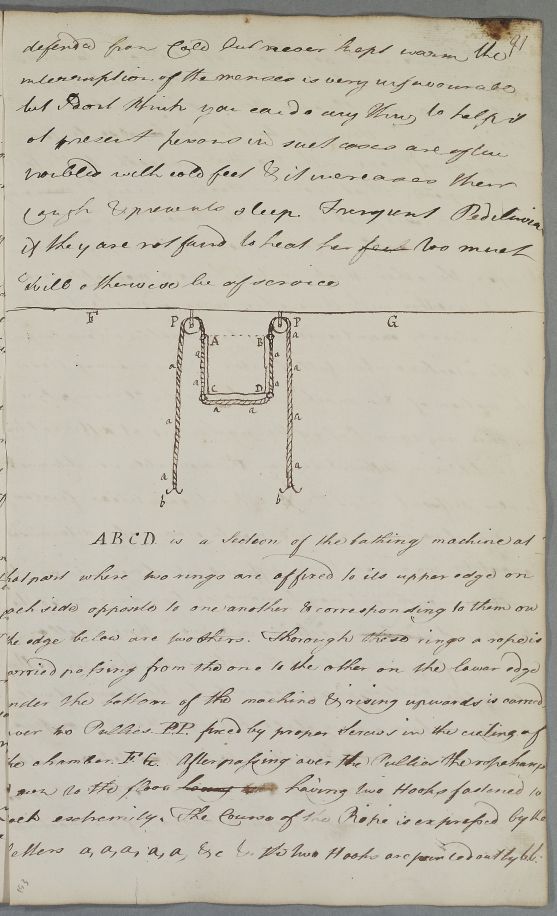 91
defended from Cold but never kept warm the
interruption of the menses is very unfavourable
but I dont think you can do any thing to help it
at present persons in such cases are often
troubled with cold feet & it increases their
Cough & prevents sleep. Frequent Pediluvia
if they are not found to heat her feet too much
will otherwise be of service
F P P G
A B
a a a
a a a
C D
a a
a a
a a
b b
ABCD is a Section of the bathing machine at
that part where two rings are affixed to its upper edge on
each side opposite to one another & corresponding to them on
the edge below are two others. Thorough these rings a rope is
carried passing from the one to the other on the lower edge
under the bottom of the machine & rising upwards is carried
over two Pullies P.P. fixed by proper Screws in the cieling of
the chamber F G. After passing over the Pullies the rope hangs
down to the floor having two Hooks fastened to
each extremity. The Course of the Rope is expressed by the
letters a, a, a, a, a, &c &c the two Hooks are pointed out by bb.